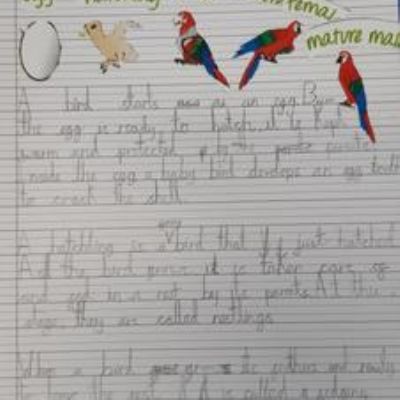 mature mal
A bird starts as an egg.
the egg is ready to hatch it is kept
warm and protected by the parents
inside the egg a baby bird develops an egg tooth
to crack the shell.
A hatchling is a bird that is just hatched
As the bird grows it is taken care of
and fed in a nest by its parents. At this
stage, they are called nestlings.
When a bird grows its feathers and ready
to leave the nest, it is called a